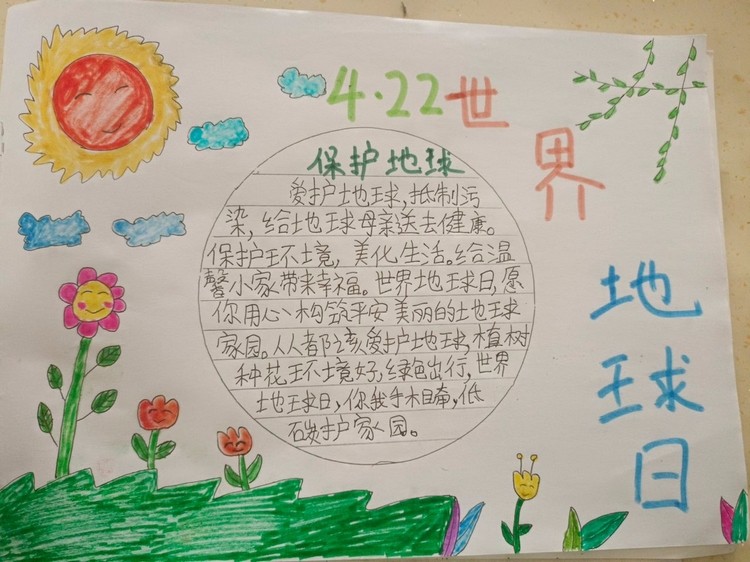 4·22世界
地球日
保护地球
爱护地球,抵制污
染,给地球母亲送去健康。
保护环境,美化生活。给温
馨小家带来幸福。世界地球日,愿
你用心构筑平安美丽的地球
家园。人人都应该爱护地球,植树
种花环境好,绿色出行,世界
地球日,你我手相牵,低
碳护家园。